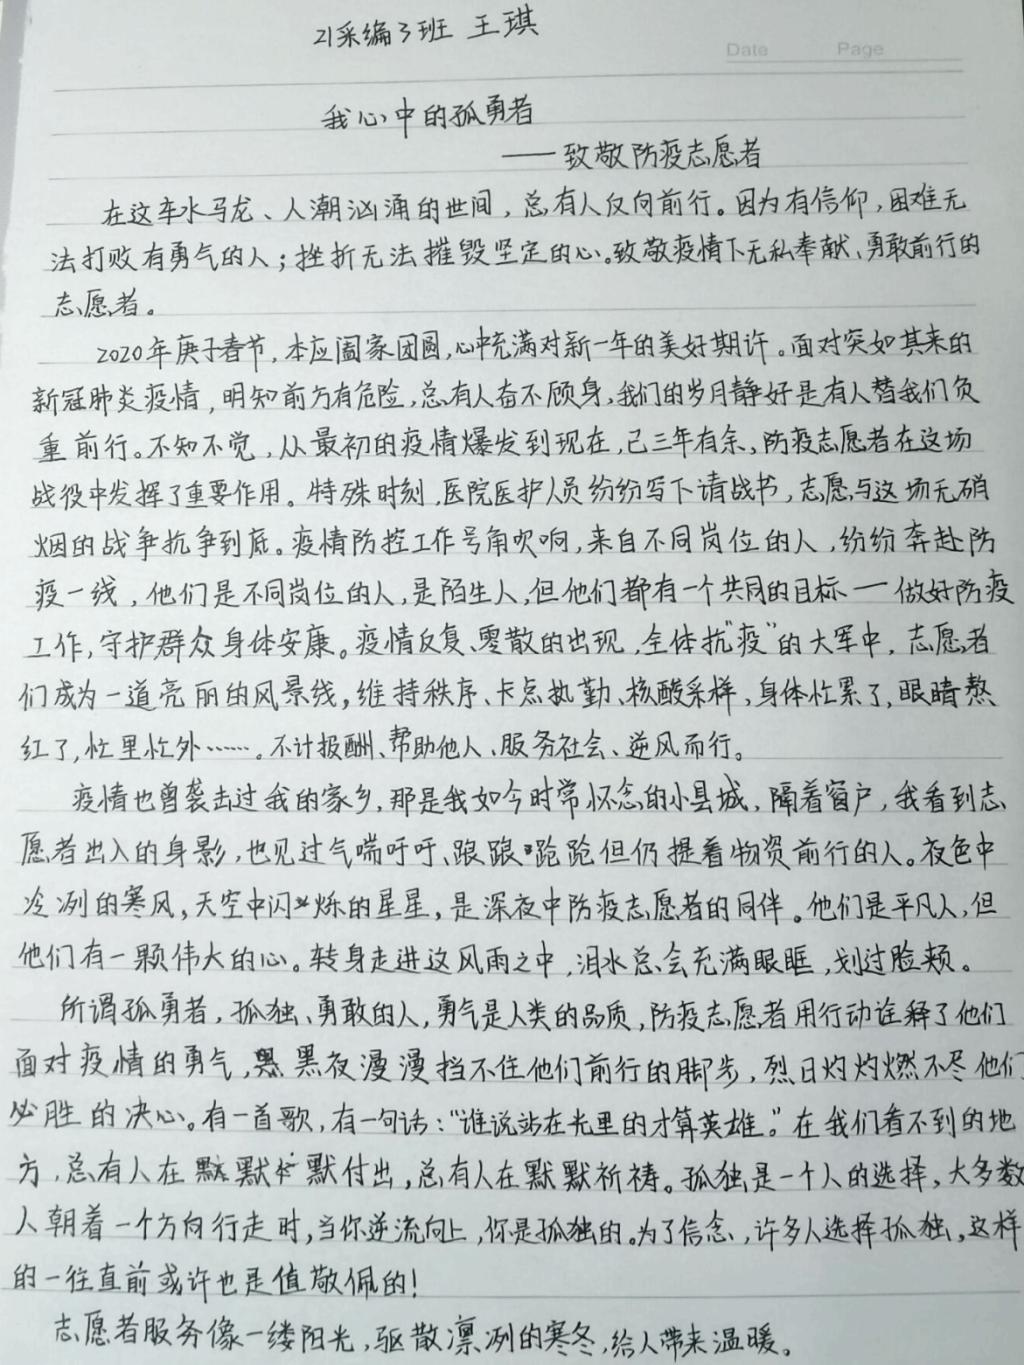 21采编3班 王琪
Date Page
我心中的孤勇者
——致敬防疫志愿者
在这车水马龙、人潮汹涌的世间，总有人反向前行。因为有信仰，困难无
法打败有勇气的人；挫折无法摧毁坚定的心。致敬疫情下无私奉献、勇敢前行的
志愿者。
2020年庚子春节，本应阖家团圆，心中充满对新一年的美好期许。面对突如其来的
新冠肺炎疫情，明知前方有危险，总有人奋不顾身，我们的岁月静好是有人替我们负
重前行。不知不觉，从最初的疫情爆发到现在，已三年有余，防疫志愿者在这场
战役中发挥了重要作用。特殊时刻，医院医护人员纷纷写下请战书，志愿与这场无硝
烟的战争抗争到底。疫情防控工作号角吹响，来自不同岗位的人，纷纷奔赴防
疫一线，他们是不同岗位的人，是陌生人，但他们都有一个共同的目标—做好防疫
工作，守护群众身体安康。疫情反复、零散的出现，全体抗“疫”的大军中，志愿者
们成为一道亮丽的风景线，维持秩序、卡点执勤、核酸采样，身体忙累了，眼睛熬
红了，忙里忙外……。不计报酬、帮助他人、服务社会、逆风而行。
疫情也曾袭击过我的家乡，那是我如今时常怀念的小县城，隔着窗户，我看到志
愿者出入的身影，也见过气喘吁吁、踉踉跄跄但仍提着物资前行的人。夜色中
冷冽的寒风，天空中闪烁的星星，是深夜中防疫志愿者的同伴。他们是平凡人，但
他们有一颗伟大的心。转身走进这风雨之中，泪水总会充满眼眶，划过脸颊。
所谓孤勇者，孤独、勇敢的人，勇气是人类的品质，防疫志愿者用行动诠释了他们
面对疫情的勇气，黑夜漫漫挡不住他们前行的脚步，烈日灼灼燃不尽他们
必胜的决心。有一首歌，有一句话：“谁说站在光里的才算英雄。”在我们看不到的地
方，总有人在默默付出，总有人在默默祈祷。孤独是一个人的选择，大多数
人朝着一个方向行走时，当你逆流向上，你是孤独的。为了信念，许多人选择孤独，这样
的一往直前或许也是值敬佩的！
志愿者服务像一缕阳光，驱散凛冽的寒冬，给人带来温暖。